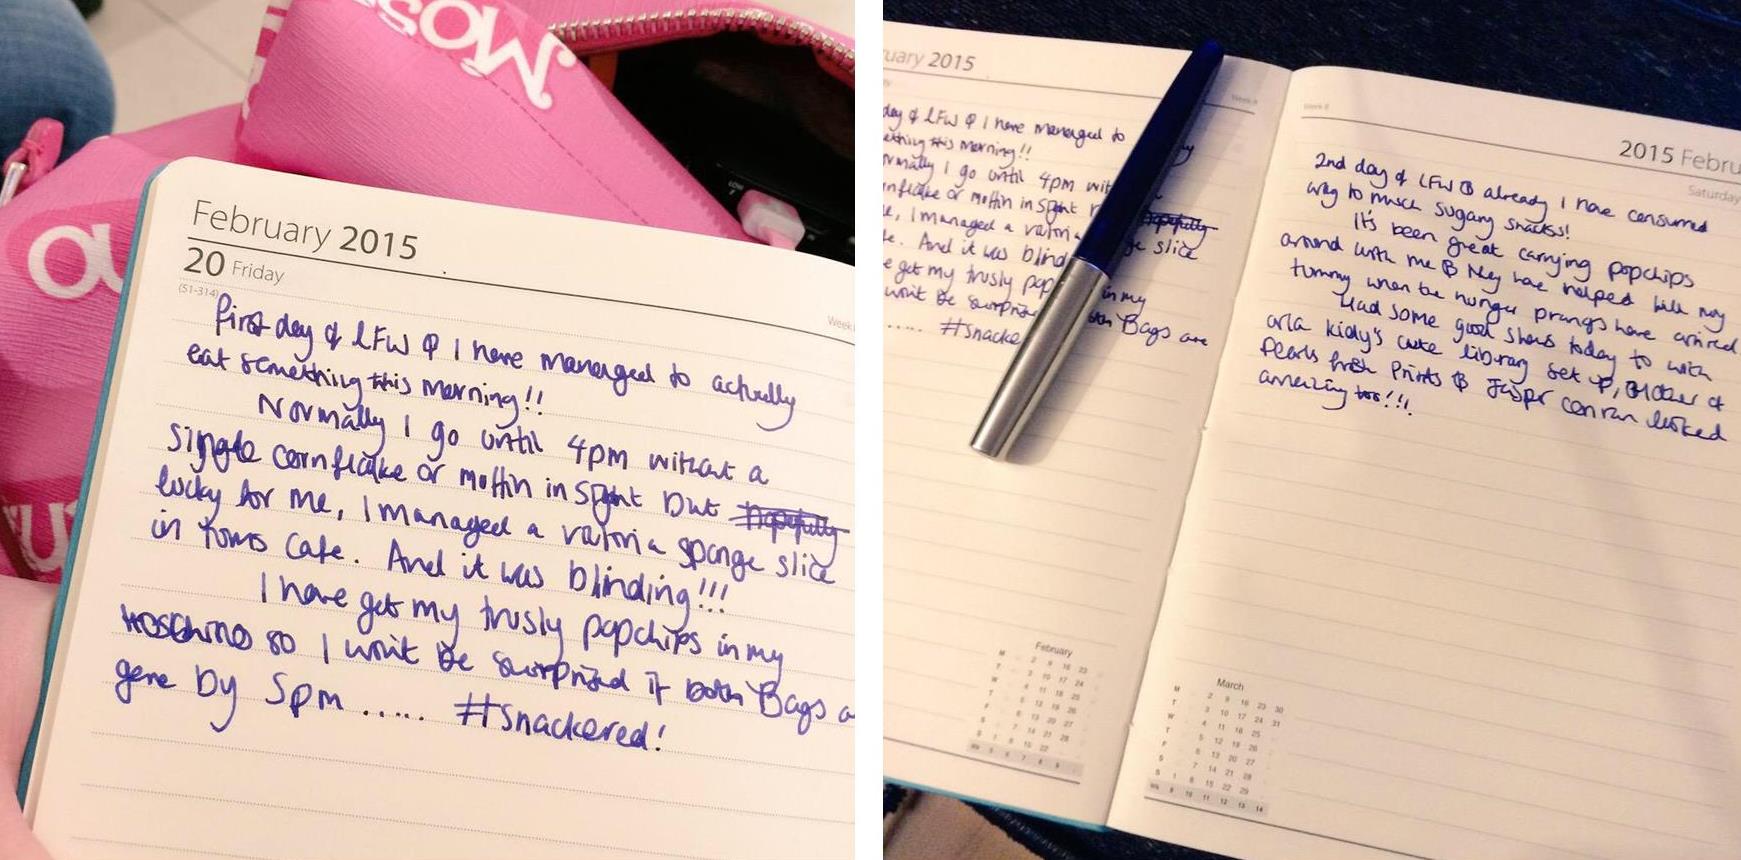 Mos
February 2015
20 Friday
(51-314)
Week
First day of LFW & I have managed to actually
eat something this morning!!
Normally I go until 4pm without a
single cornflake or muffin in sight but hopefully
lucky for me, I managed a victoria sponge slice
in toms cafe. And it was blinding!!!
I have got my trusty popchips in my
moschino so I won't be surprised if both Bags a
gone by 5pm ..... #snackered!
ruary 2015
Week 8
day of LFW & I have managed to
ething this morning!!
ormally I go until 4pm wit
nflake or muffin in sight
e, I managed a victoria
ge slice
fe. And it was blind
e got my trusty pop
in my
won't be surpris
both Bags are
..... #snacke
February
M 2 9 16 23
T 3 10 17 24
W 4 11 18 25
T 5 12 19 26
F 6 13 20 27
S 7 14 21 28
S 1 8 15 22
Wk 5 6 7 8 9
Week 8
2015 Febru
Saturday
2nd day of LFW & already I have consumed
way to much sugary snacks!
It's been great carrying popchips
around with me & they have helped fill my
tummy when the hunger prangs have arrived
Had some good shows today to with
orla kiely's cute library set up, Mother of
Pearls fresh prints & Jasper conran looked
amazing too!!!
March
M 2 9 16 23 30
T 3 10 17 24 31
W 4 11 18 25
T 5 12 19 26
F 6 13 20 27
S 7 14 21 28
S 1 8 15 22 29
Wk 9 10 11 12 13 14